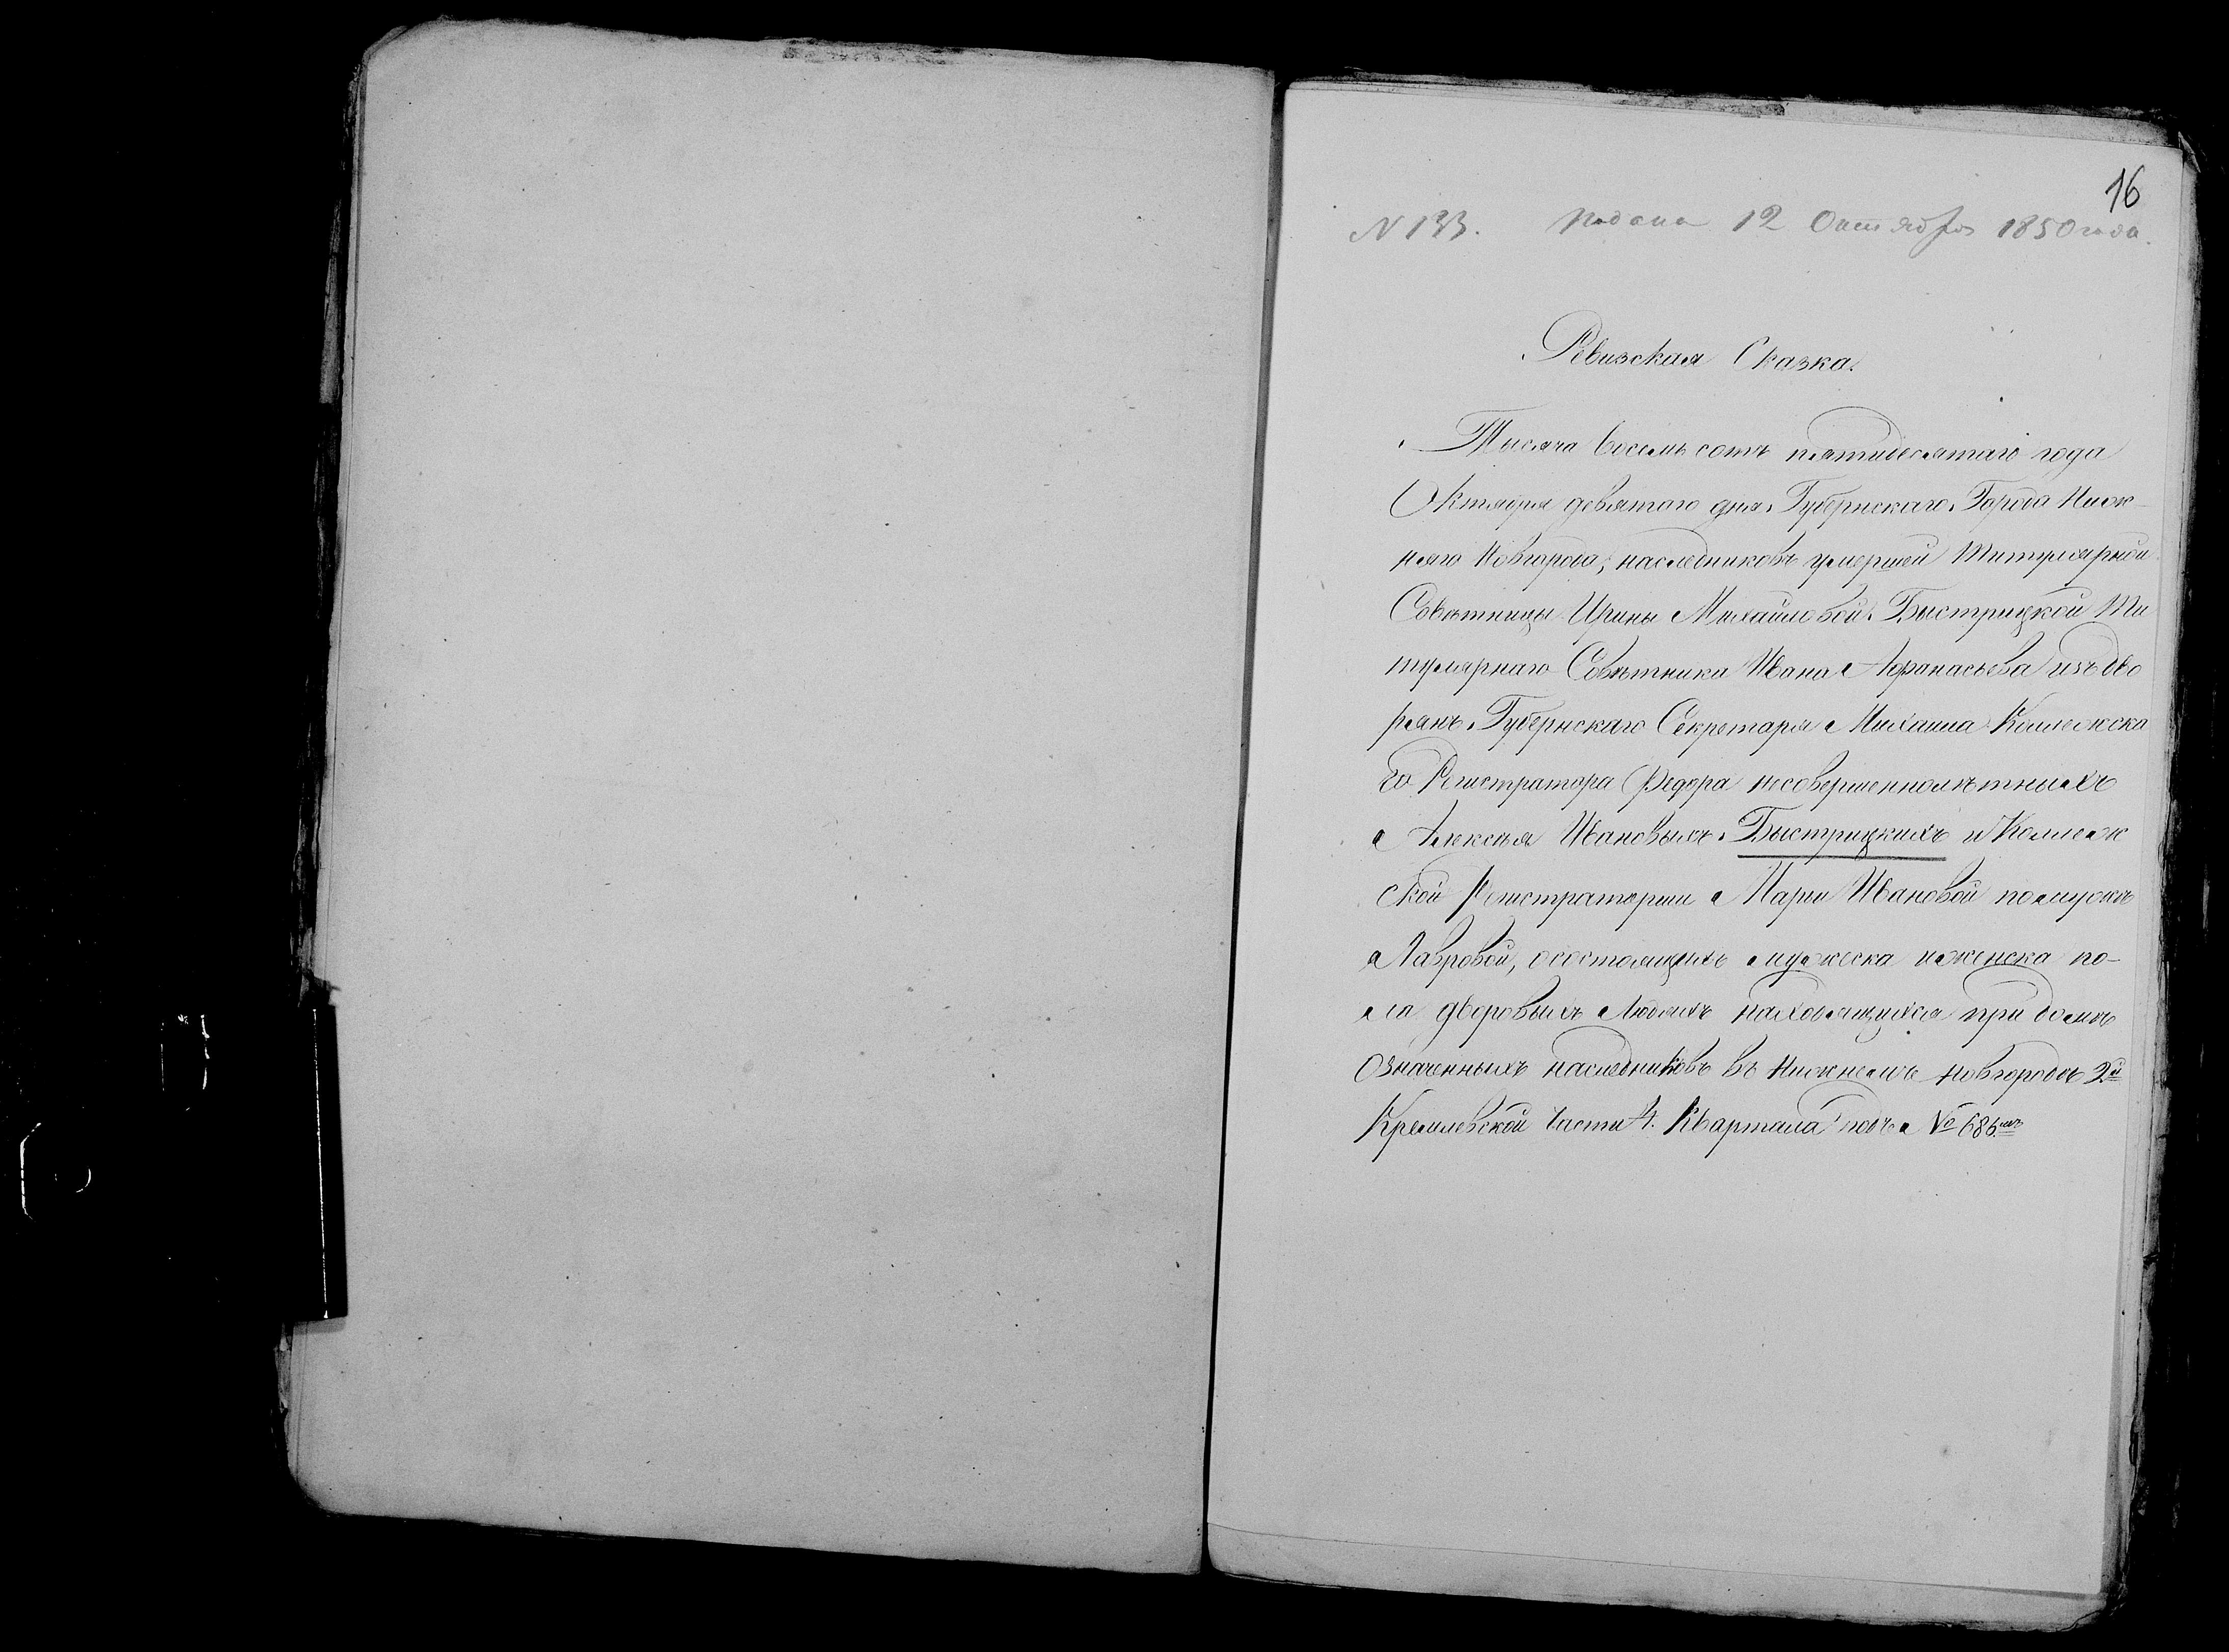 16
N 133. Подана 12 Октября 1850 года.
Ревизская Сказка.
Тысяча восемь сотъ пятидесятаго года
Октября девятаго дня. Губернскаго Города Ниж-
няго Новгорода, наследниковъ умершей Титулярной
Совѣтницы Ирины Михайловой Быстрицкой Ти
тулярнаго Совѣтника Ивана Афанасьева изъ дво
рянъ Губернскаго Секретаря Михаила Коллежска
го Регистратора Федора несовершеннолѣтныхъ
Алексѣя Ивановыхъ Быстрицкихъ и Коллеж
ской Регистраторши Марьи Ивановой помужѣ
Лавровой, осостоящихъ мужеска иженска по-
ла дворовыхъ людяхъ находящихся при домѣ
Означенныхъ наследниковъ въ Нижнемъ Новгородѣ 2й
Кремлевской Части 4. Квартала подъ № 686мъ